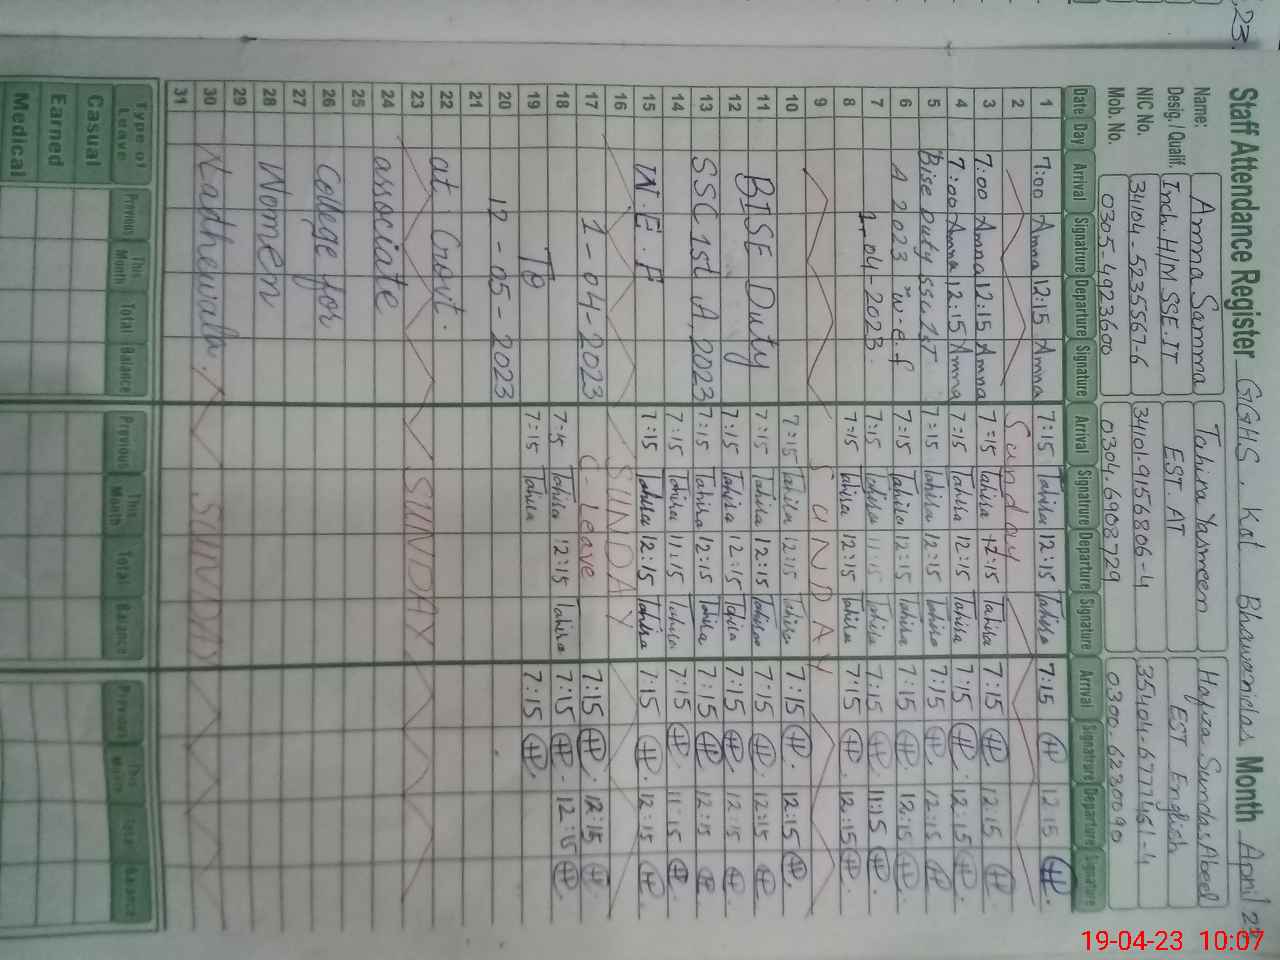 23.
Staff Attendance Register GGHS, Kot Bhawanidas Month April 23
Name: Amna Samma Tahira Yasmeen Hafiza Sundas Abeel
Desig. / Qualif. Inch. H/M SSE.IT EST. AT EST English
NIC No. 34104-5235567-6 34101-9156806-4 35404-6777461-4
Mob. No. 0305-4923600 0304-6908729 0300-6230090
Date Day Arrival Signature Departure Signature Arrival Signature Departure Signature Arrival Signature Departure Signature
1 7:00 Amna 12:15 Amna 7:15 Tahira 12:15 Tahira 7:15 H 12:15 H
2 Sunday
3 7:00 Amna 12:15 Amna 7:15 Tahira 12:15 Tahira 7:15 H 12:15 H
4 7:00 Amna 12:15 Amna 7:15 Tahira 12:15 Tahira 7:15 H 12:15 H
5 Bise Duty SSC 1st 7:15 Tahira 12:15 Tahira 7:15 H 12:15 H
6 A 2023 w.e.f 7:15 Tahira 12:15 Tahira 7:15 H 12:15 H
7 1-04-2023. 7:15 Tahira 11:15 Tahira 7:15 H 11:15 H
8 7:15 Tahira 12:15 Tahira 7:15 H 12:15 H
9 SUNDAY
10 7:15 Tahira 12:15 Tahira 7:15 H 12:15 H
11 BISE Duty 7:15 Tahira 12:15 Tahira 7:15 H 12:15 H
12 7:15 Tahira 12:15 Tahira 7:15 H 12:15 H
13 SSC 1st A, 2023 7:15 Tahira 12:15 Tahira 7:15 H 12:15 H
14 7:15 Tahira 11:15 Tahira 7:15 H 11:15 H
15 W.E.F 7:15 Tahira 12:15 Tahira 7:15 H 12:15 H
16 SUNDAY
17 1-04-2023 C-Leave 7:15 H 12:15 H
18 7:15 Tahira 12:15 Tahira 7:15 H 12:15 H
19 To 7:15 Tahira 7:15 H
20 12-05-2023
21
22 at Govt.
23 SUNDAY
24 associate
25
26 College for
27
28 Women
29
30 Nadhewala. SUNDAY
31
Type of Leave Previous This Month Total Balance Previous This Month Total Balance Previous This Month Total Balance
Casual
Earned
Medical
19-04-23 10:07